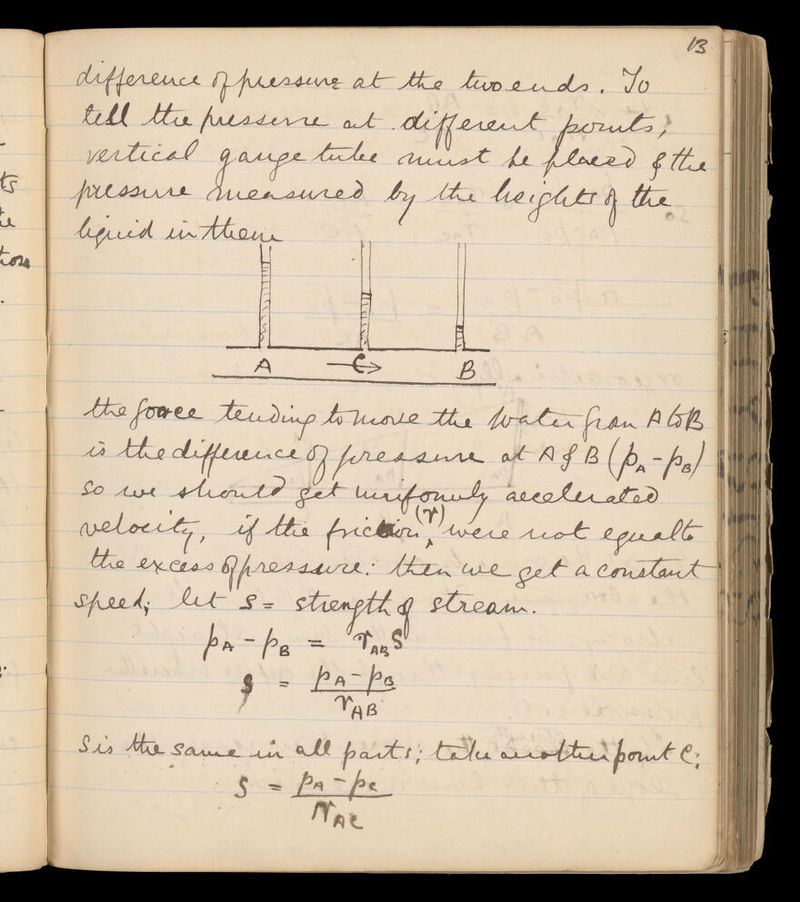 ts
13
difference of pressure at the two ends. To
tell the pressure at different points,
vertical gauge tube must be placed & the
pressure measured by the heights of the
liquid in them
A C B
the force tending to move the water from A to B
is the difference of pressure at A & B (pA - pB)
so we should get uniformly accelerated
velocity, if the friction (r) were not equal to
the excess of pressure: then we get a constant
speed; let S = strength of stream.
pA - pB = rAB S
S = pA - pB / rAB
S is the same in all parts; take another point C;
S = pA - pC / rAC